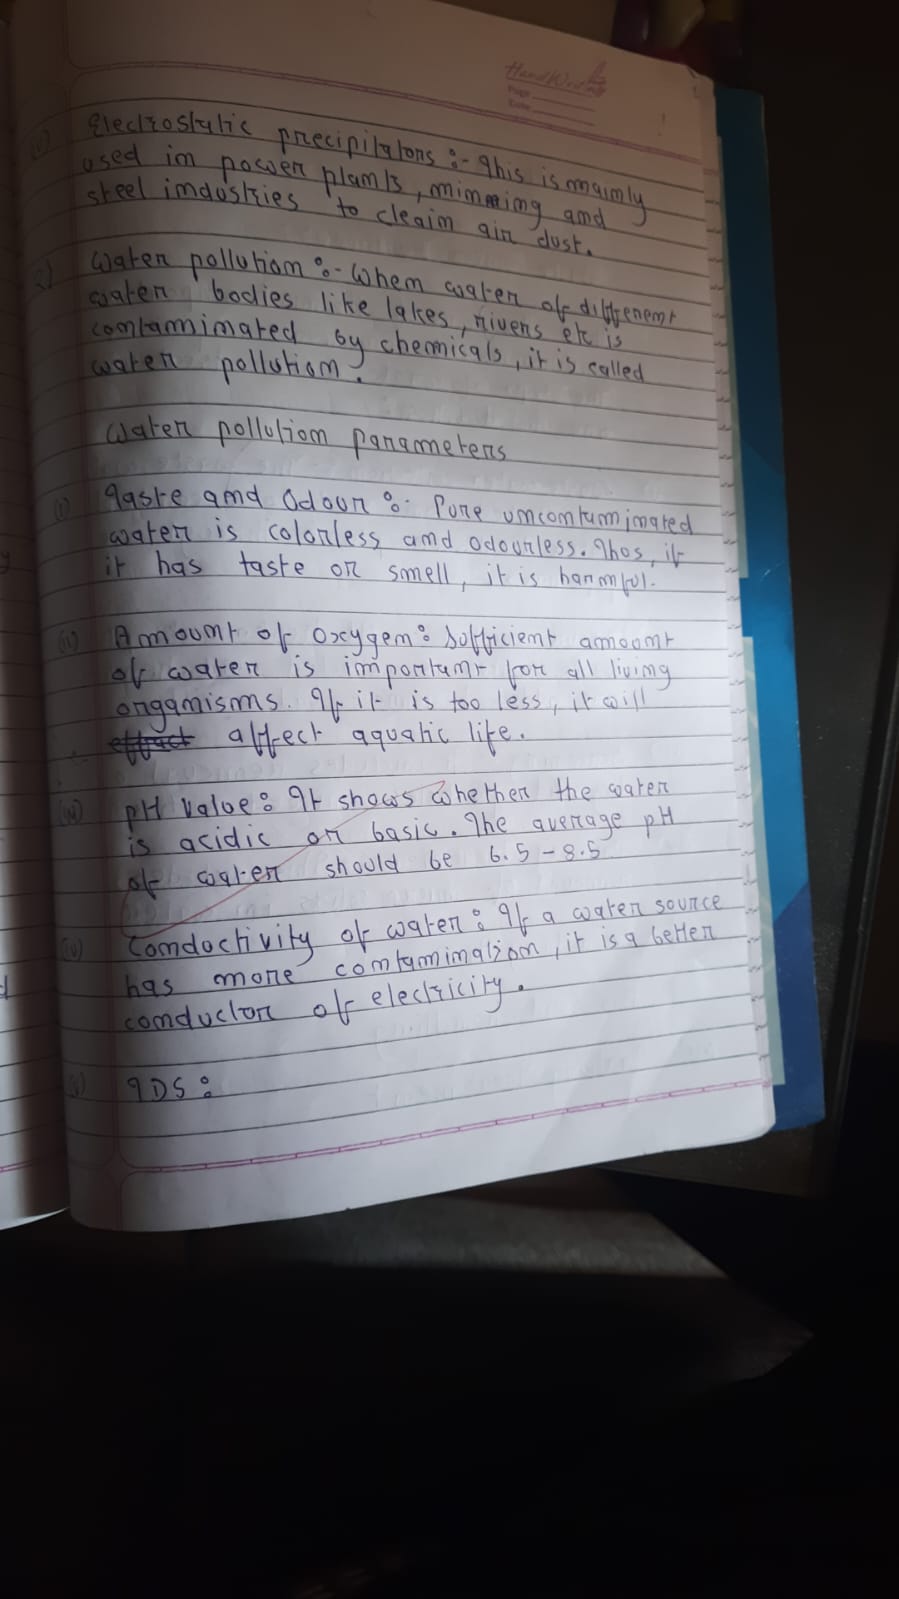 HandWritten
Page
Date
(v) Electrostatic precipitators :- This is mainly
used in power plants, minning and
steel industries to cleain air dust.
2) Water pollution :- When water of different
water bodies like lakes, rivers etc is
contaminated by chemicals, it is called
water pollution.
Water pollution parameters
(i) Taste and Odour :- Pure uncontaminated
water is colorless and odourless. Thus, if
it has taste or smell, it is harmful.
(ii) Amount of Oxygen: Sufficient amount
of water is important for all living
organisms. If it is too less, it will
effect affect aquatic life.
(iii) pH value: It shows whether the water
is acidic or basic. The average pH
of water should be 6.5-8.5
(iv) Conductivity of water: If a water source
has more contamination, it is a better
conductor of electricity.
(v) TDS: